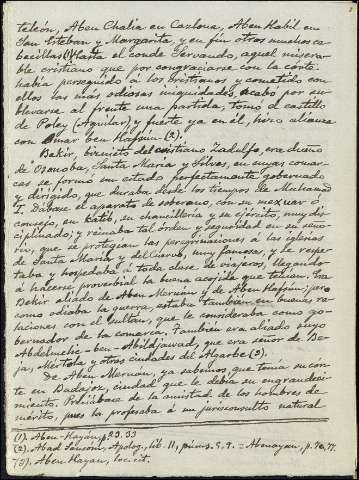 teleón, Aben Chalia en Cazlona, Aben Habil en
San Esteban y Margarita, y en fin otros muchos ca-
becillas(1). Hasta el conde Servando, aquel misera-
ble cristiano que por congraciarse con la corte
había perseguido á los cristianos y cometido con
ellos las más odiosas iniquidades, acabó por su-
blevarse al frente una partida, tomó el castillo
de Poley (Aguilar) y fuerte ya en él, hizo alianza
con Omar ben Hafsún (2).
Bekir, biznieto del cristiano Zadulfo, era dueño
de Osonoba, Santa María y Silves, en cuyas comar-
cas se formó un estado perfectamente gobernado
y dirigido, que duraba desde los tiempos de Mohamed
I. Dábase el aparato de soberano, con su mexuar ó
consejo, en Katib, su chancillería y su ejército, muy dis-
ciplinado; y reinaba tal orden y seguridad en su seño-
río, que se protegían las peregrinaciones á las iglesias
de Santa María y del Cuervo, muy famosas, y se respe-
taba y hospedaba á toda clase de viajeros, llegando
á hacerse proverbial la buena acogida que tenían. Era
Bekir aliado de Aben Meruán y de Aben Hafsún; pero
como odiaba la guerra, estaba también en buenas re-
laciones con el Sultán, que le consideraba como go-
bernador de la comarca. También era aliado suyo
Abdelmelic-ben-Abildjawad, que era señor de Be-
ja, Mértola y otras ciudades del Algarbe (3).
De Aben Meruán, ya sabemos que tenía su cor-
te en Badajoz, ciudad que le debía su engrandeci-
miento. Preciábase de la amistad de los hombres de
mérito, pues la profesaba á un jurisconsulto natural
(1). Aben Hayán, p. 23. 33
(2). Abad Sansón, Apolog., lib. II, núms. 5, 9. = Abenayan, p. 70, 77.
(3). Aben Hayan, loc. cit.